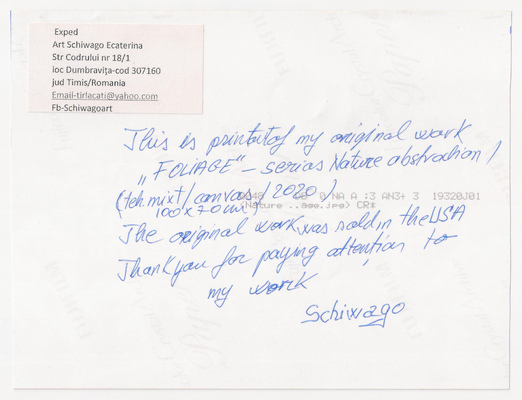 Exped
Art Schiwago Ecaterina
Str Codrului nr 18/1
ioc Dumbravița-cod 307160
jud Timis/Romania
Email-tirlacati@yahoo.com
Fb-Schiwagoart
This is printatof my original work
„FOLIAGE" – serias Nature abstration/
(teh.mixt/canvas/2020)
100x70cm)
0 NA A :3 AN3+ 3 19320J01
(Nature ..age.jpg) CR*
The original work was sold in the USA
Thank you for paying attention to
my work
Schiwago